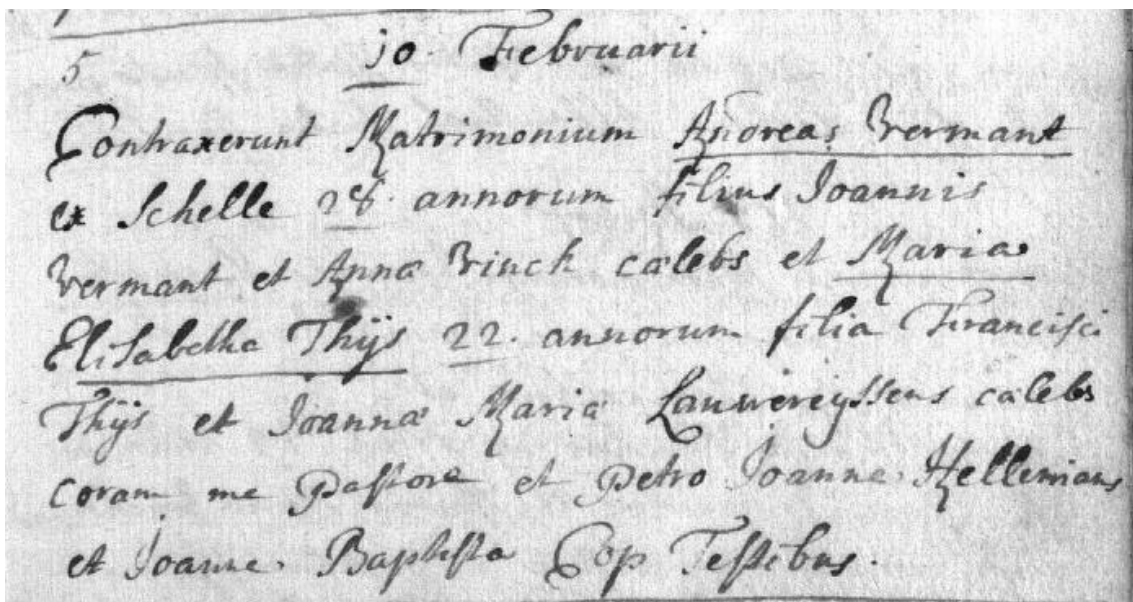 5 10. Februarii
Contraxerunt Matrimonium Andreas Vermant
ex Schelle 28. annorum filius Joannis
Vermant et Annæ Vinck cælebs et Maria
Elisabetha Thijs 22. annorum filia Francisci
Thijs et Joannæ Mariæ Lauwereyssens cælebs
coram me Pastore et Petro Joanne Hellemans
et Joanne Baptista Cop Testibus.